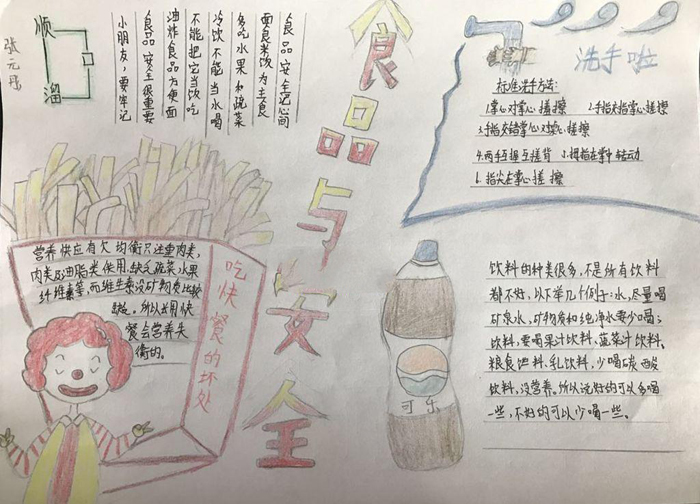 食品与安全
张元丹
顺
溜
食品安全记心间
面食米饭为主食
多吃水果和蔬菜
冷饮不能当水喝
不能把它当饭吃
油炸食品方便面
食品安全很重要
小朋友，要牢记
洗手啦
标准洗手方法：
1.掌心对掌心搓擦 2.手指交指掌心搓擦
3.手指交错掌心对掌心搓擦
4.两手互握互搓背 5.拇指在掌中转动
6.指尖在掌心搓擦
营养供应有欠均衡只注重肉类，
肉类及油脂类使用，缺乏蔬菜水果
纤维素等，而维生素
矿物质比较
所以长用快
餐会营养失
衡的。
吃快餐的坏处
可乐
饮料的种类很多，不是所有饮料
都不好，以下举几个例子：水，尽量喝
矿泉水，矿物质和纯净水要少喝；
饮料，要喝果汁饮料、蔬菜汁饮料、
粮食饮料、乳饮料，少喝碳酸
饮料，没营养。所以说好的可以多喝
一些，不好的可以少喝一些。